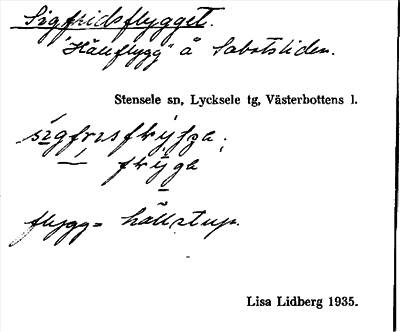 Sigfridsflygget.
"Hällflygg" å Sabotsliden.
Stensele sn, Lycksele tg, Västerbottens l.
flygg = hällstup.
Lisa Lidberg 1935.